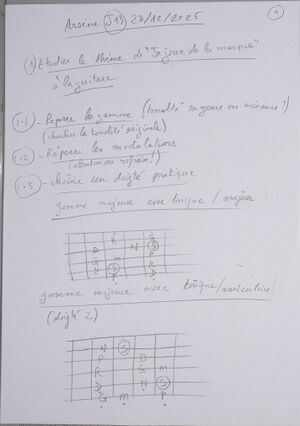 Arsène J13 28/12/2025
1
1) Etudier le thème de "Je joue de la musique"
à la guitare
1.1 - Repérer la gamme (tonalité majeure ou mineure ?)
(chercher la tonalité originale)
1.2 - Repérer les modulations
(attention au refrain !)
1.3 - choisir un doigté pratique
gamme majeure avec tonique / majeur
R G
D N S
G P
N S R
P D
gamme majeure avec tonique/auriculaire
(doigté 2)
N S
P D
R G M
D N S
G M P